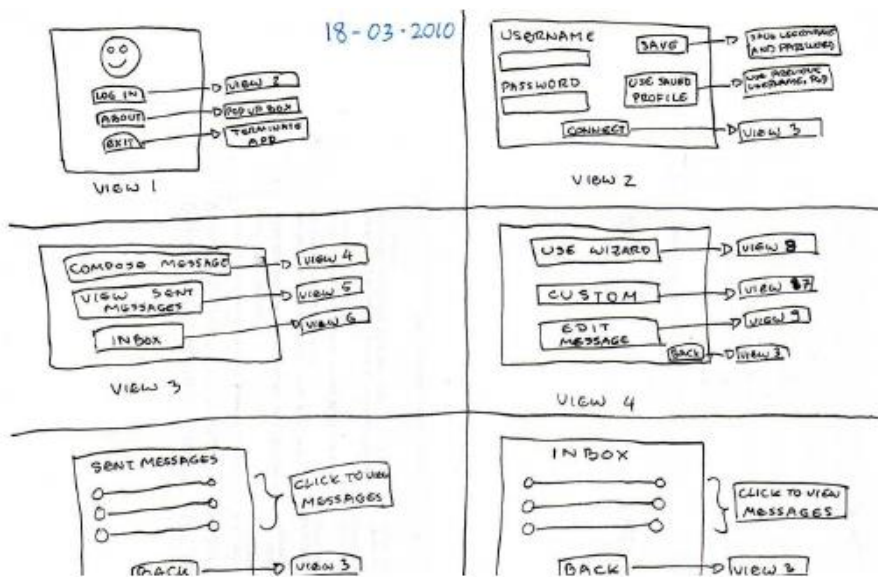 18-03-2010
LOG IN
VIEW 2
ABOUT
POP UP BOX
EXIT
TERMINATE
APP
VIEW 1
USERNAME
SAVE
SAVE USERNAME
AND PASSWORD
PASSWORD
USE SAVED
PROFILE
USE PREVIOUS
USERNAME,
CONNECT
VIEW 3
VIEW 2
COMPOSE MESSAGE
VIEW 4
VIEW SENT
MESSAGES
VIEW 5
INBOX
VIEW 6
VIEW 3
USE WIZARD
VIEW 8
CUSTOM
VIEW 7
EDIT
MESSAGE
VIEW 9
BACK
VIEW 3
VIEW 4
SENT MESSAGES
CLICK TO VIEW
MESSAGES
BACK
VIEW 3
INBOX
CLICK TO VIEW
MESSAGES
BACK
VIEW 3